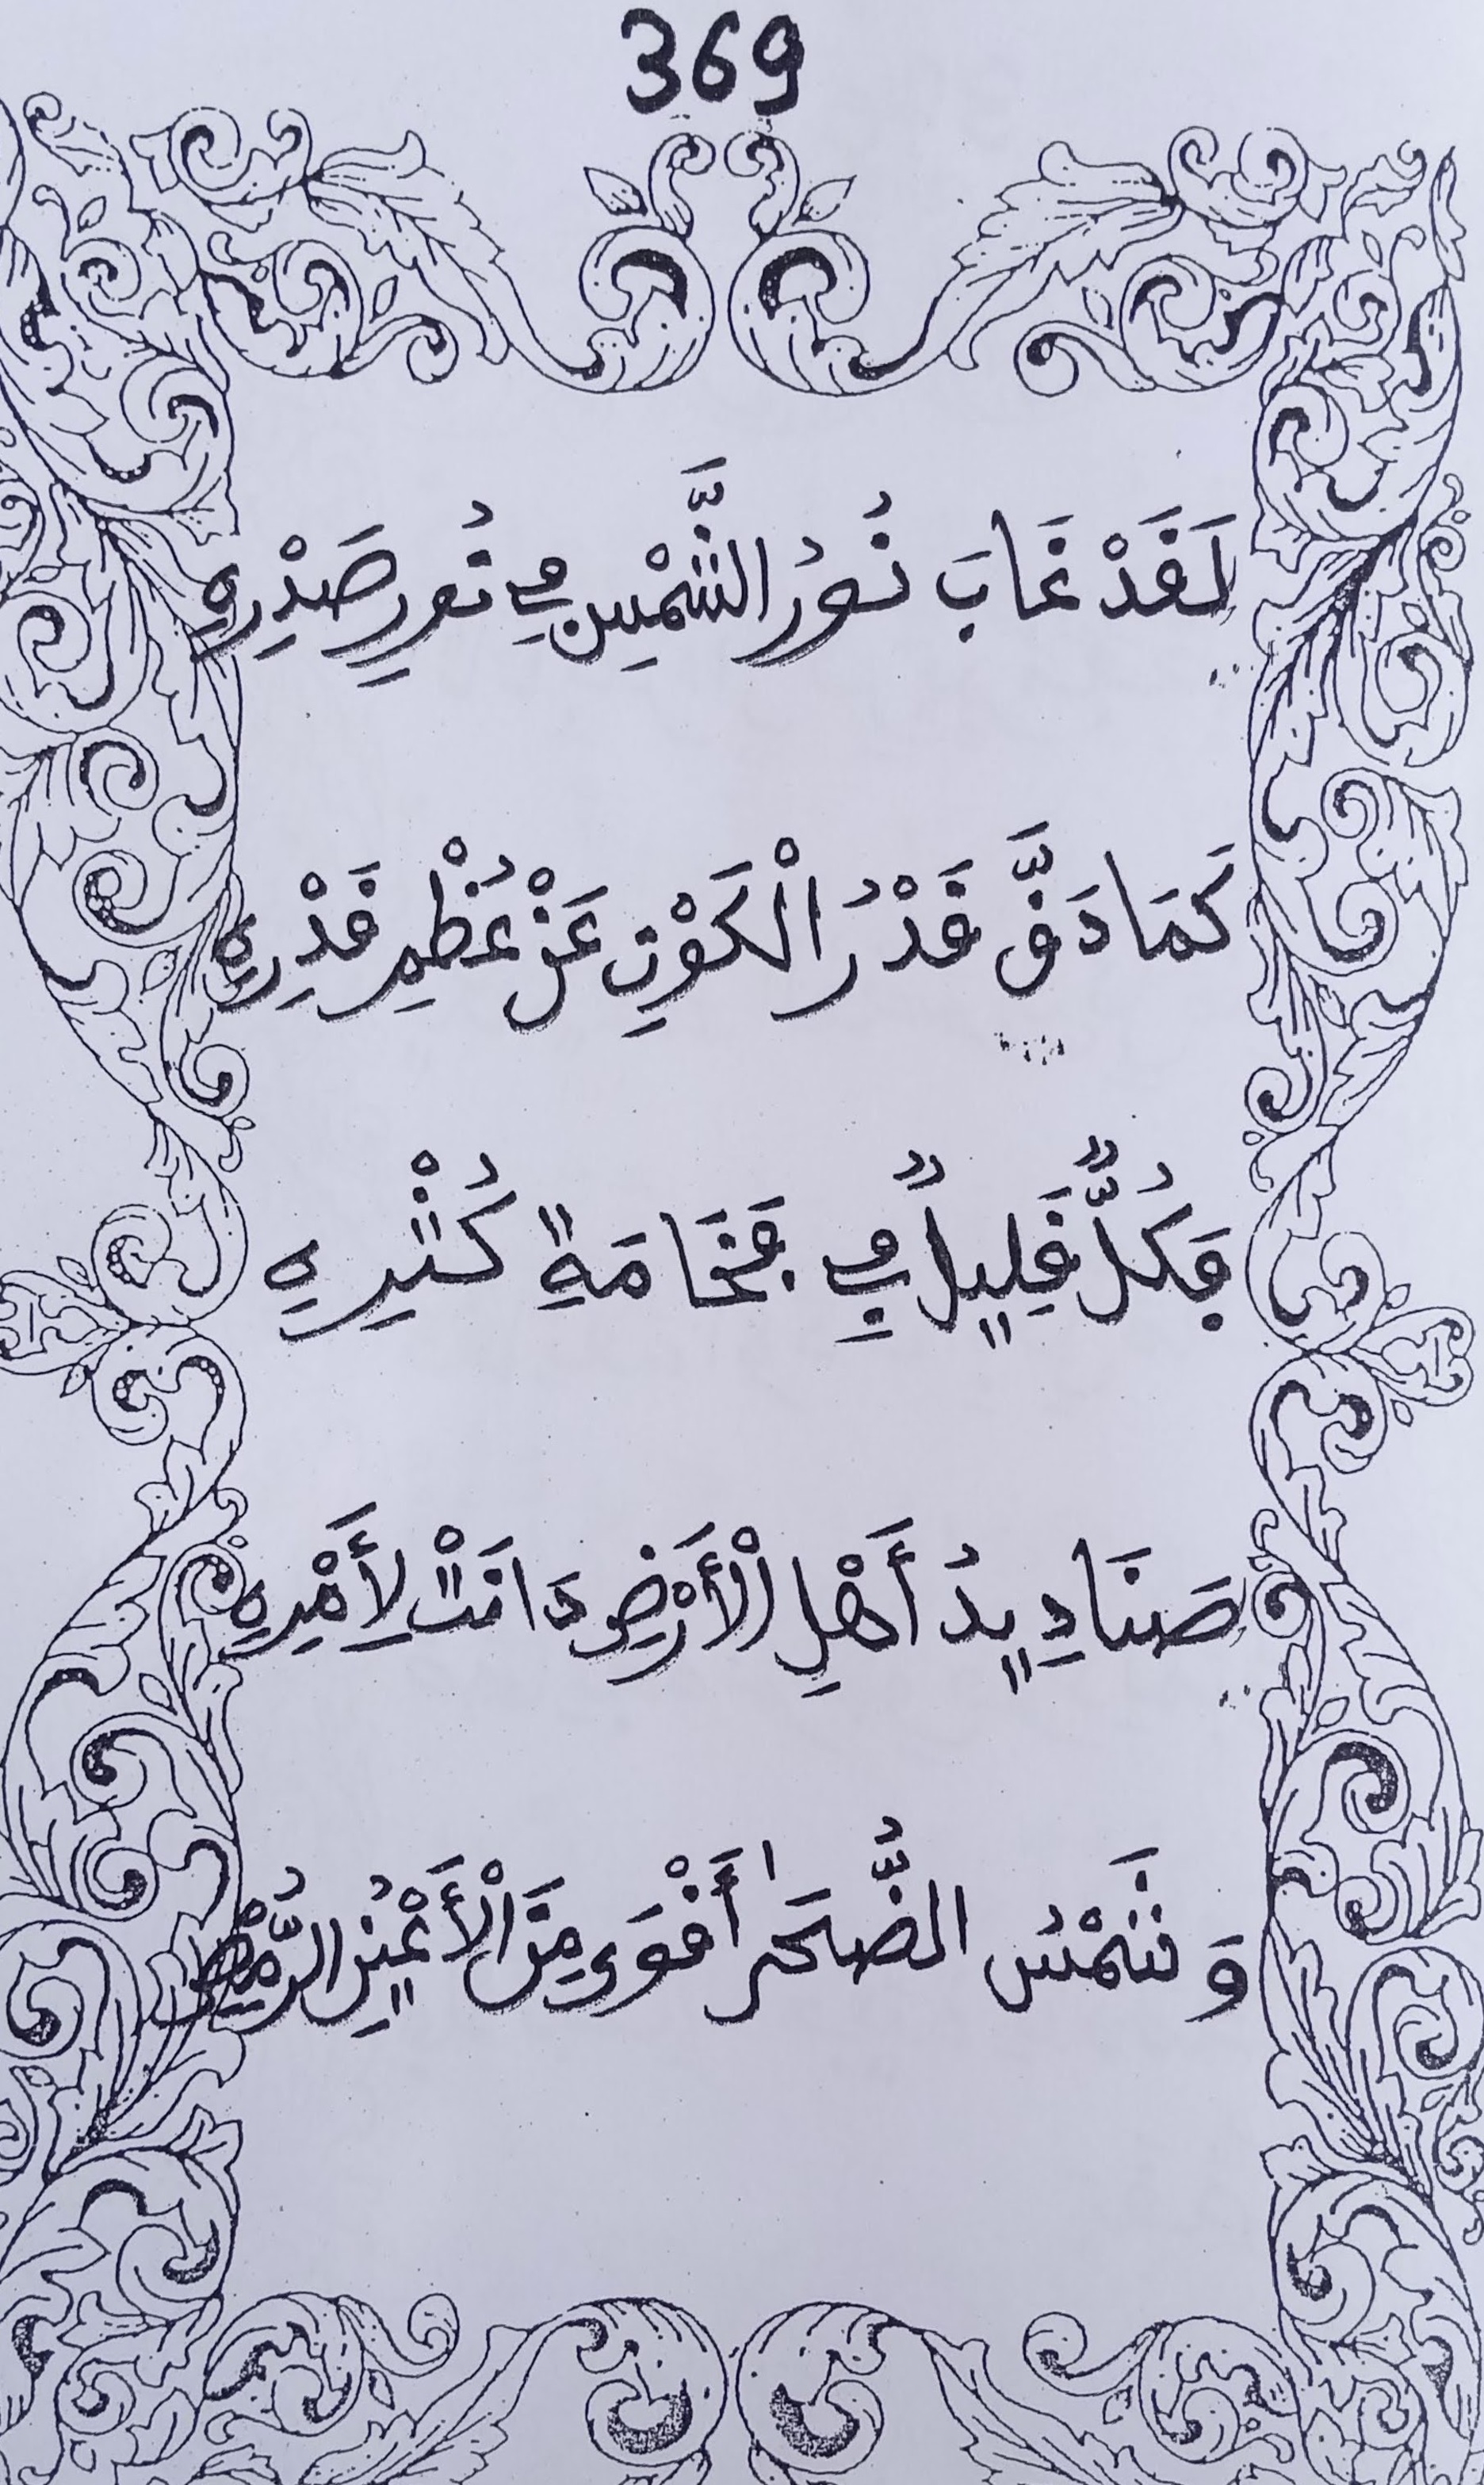 369
لَقَدْ غَابَ نُورُ الشَّمْسِ فِي نُورِ صَدْرِهِ
كَمَا دَقَّ قَدْرُ الْكَوْنِ عَنْ عُظْمِ قَدْرِهِ
فَكُلٌّ قَلِيلٌ فِي فَخَامَةِ كُثْرِهِ
صَنَادِيدُ أَهْلِ الْأَرْضِ دَانَتْ لِأَمْرِهِ
وَشَمْسُ الضُّحَى أَقْوَى مِنَ الْأَعْيُنِ الرُّمْصِ